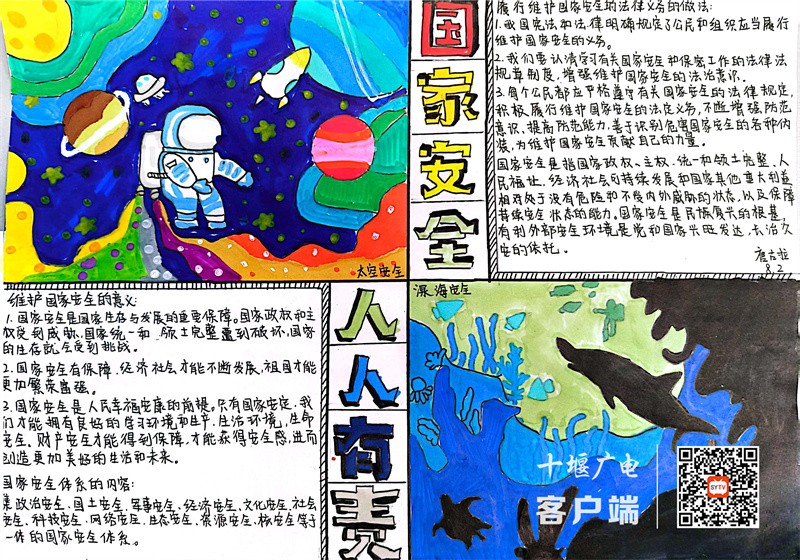 国家安全
人人有责
履行维护国家安全的法律义务的做法:
1.我国宪法和法律明确规定了公民和组织应当履行
维护国家安全的义务。
2.我们要认清学习有关国家安全和保密工作的法律法
规章制度,增强维护国家安全的法治意识。
3.每个公民都应严格遵守有关国家安全的法律规定,
积极履行维护国家安全的法定义务,不断增强防范
意识,提高防范能力,善于识别危害国家安全的各种伪
装,为维护国家安全贡献自己的力量。
国家安全是指国家政权、主权、统一和领土完整、人
民福祉、经济社会可持续发展和国家其他重大利益
相对处于没有危险和不受内外威胁的状态,以及保障
持续安全状态的能力。国家安全是民族复兴的根基,
有利外部安全环境是党和国家兴旺发达、长治久
安的依托。
8.2
太空安全
维护国家安全的意义:
1.国家安全是国家生存与发展的重要保障。国家政权和主
权受到威胁,国家统一和领土完整遭到破坏,国家
的生存就会受到挑战。
2.国家安全有保障,经济社会才能不断发展,祖国才能
更加繁荣富强。
3.国家安全是人民幸福安康的前提。只有国家安定,我
们才能拥有良好的学习环境和生产、生活环境,生命
安全、财产安全才能得到保障,才能获得安全感,进而
创造更加美好的生活和未来。
国家安全体系的内容:
集政治安全、国土安全、军事安全、经济安全、文化安全、社会
安全、科技安全、网络安全、生态安全、资源安全、核安全等于
一体的国家安全体系。
深海安全
十堰广电
客户端
SYTV